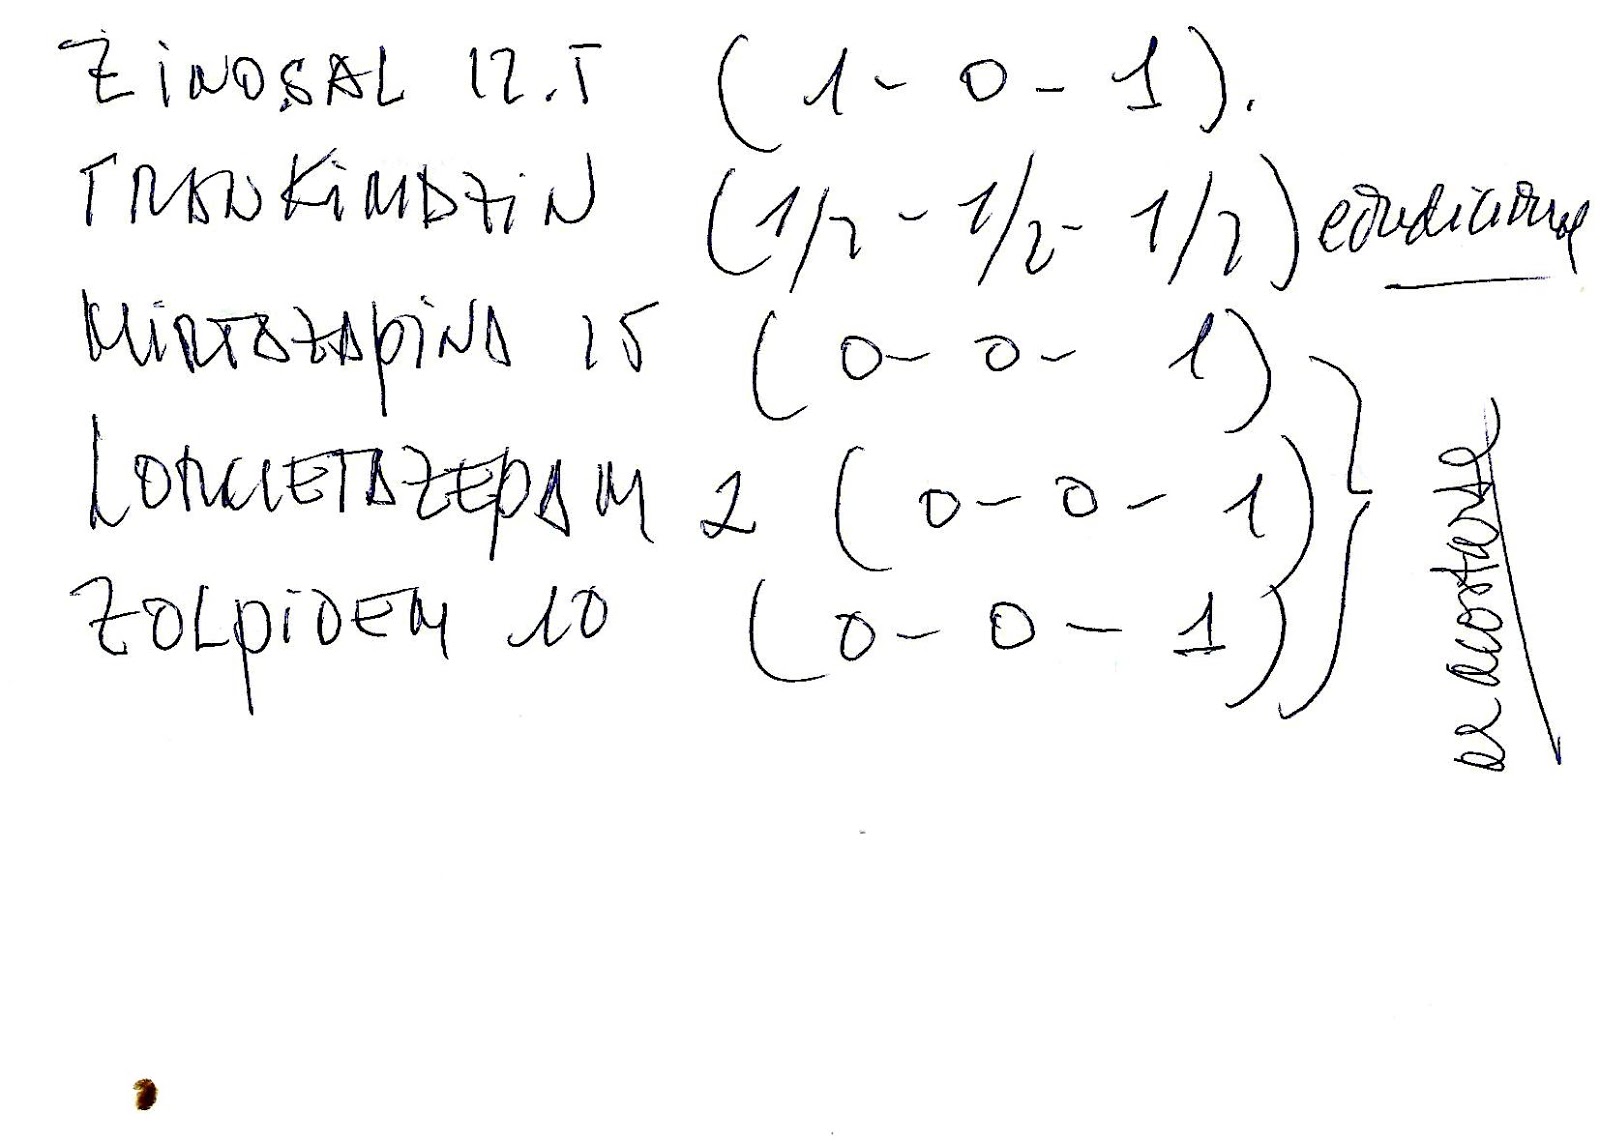 ZINOSAL 12.5 (1 - 0 - 1).
TRANKIMAZIN (1/2 - 1/2 - 1/2) condicional
MIRTAZAPINA 15 (0 - 0 - 1)
LORMETAZEPAM 2 (0 - 0 - 1)
ZOLPIDEM 10 (0 - 0 - 1)
al acostarse